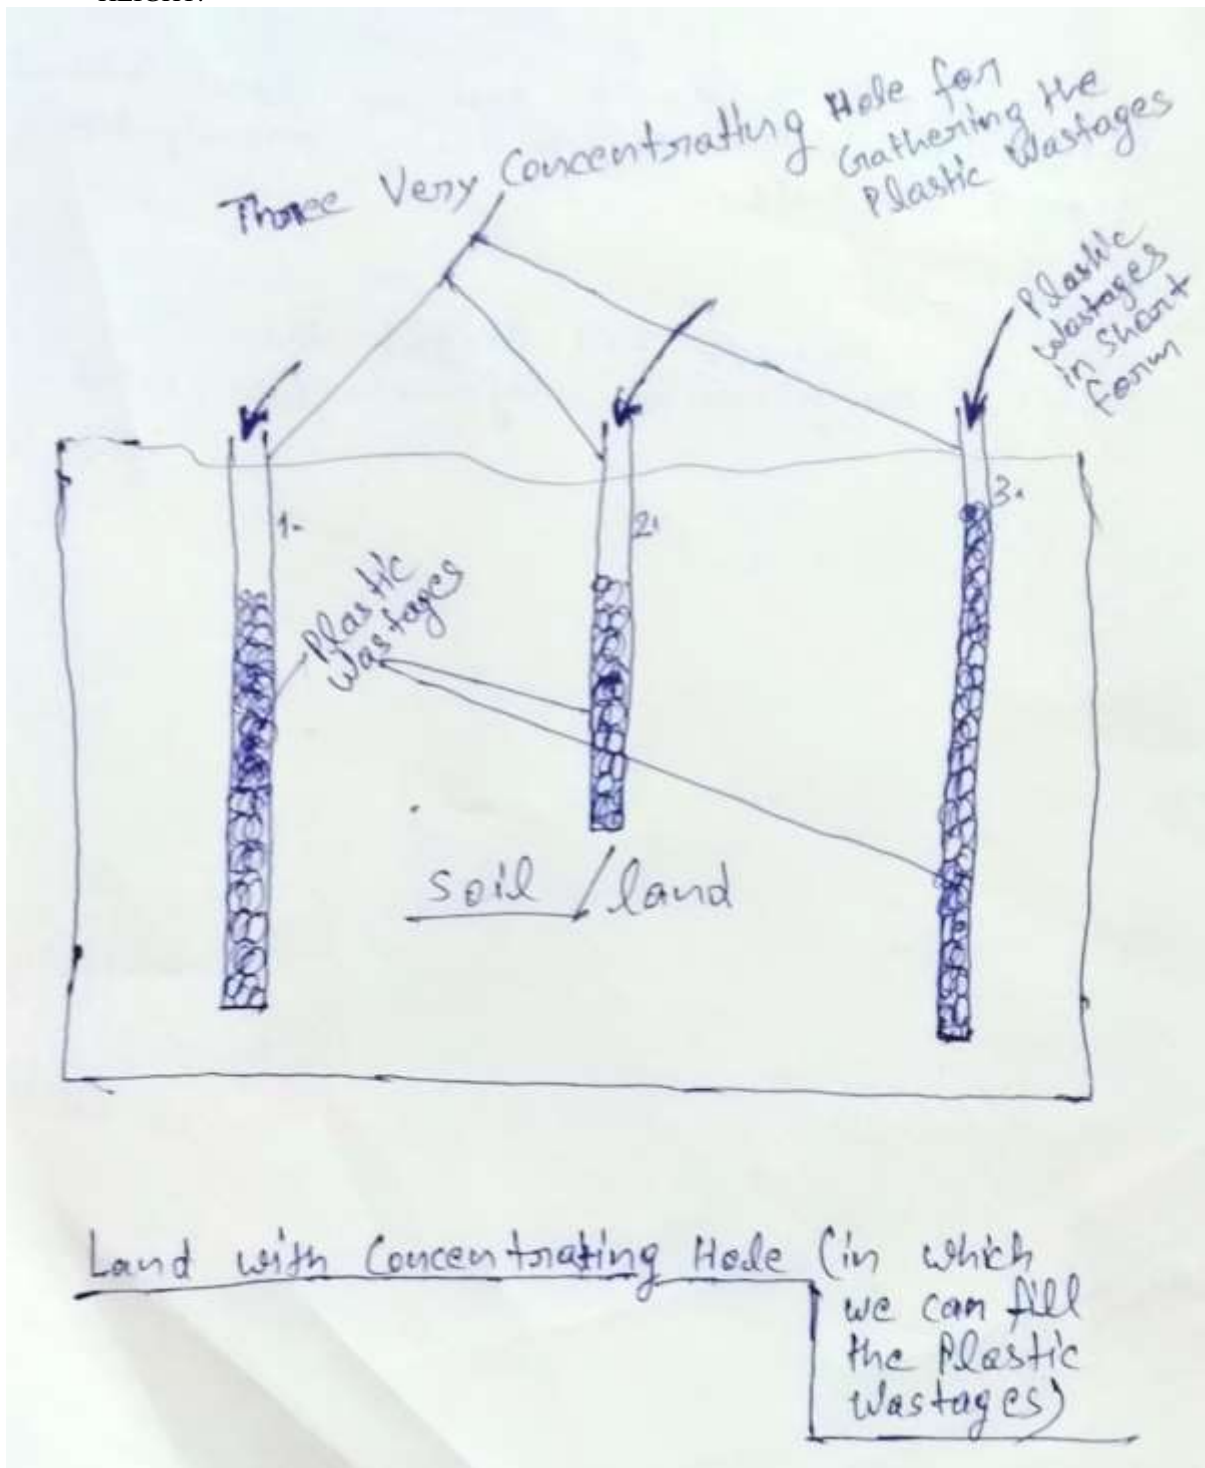 Three Very Concentratting Hole for
Gathering the
Plastic Wastages
Plastic
Wastages
in Short
form
1.
2.
3.
Plastic
Wastages
Soil / land
Land with Concentrating Hole (in which
we can fill
the Plastic
Wastages)